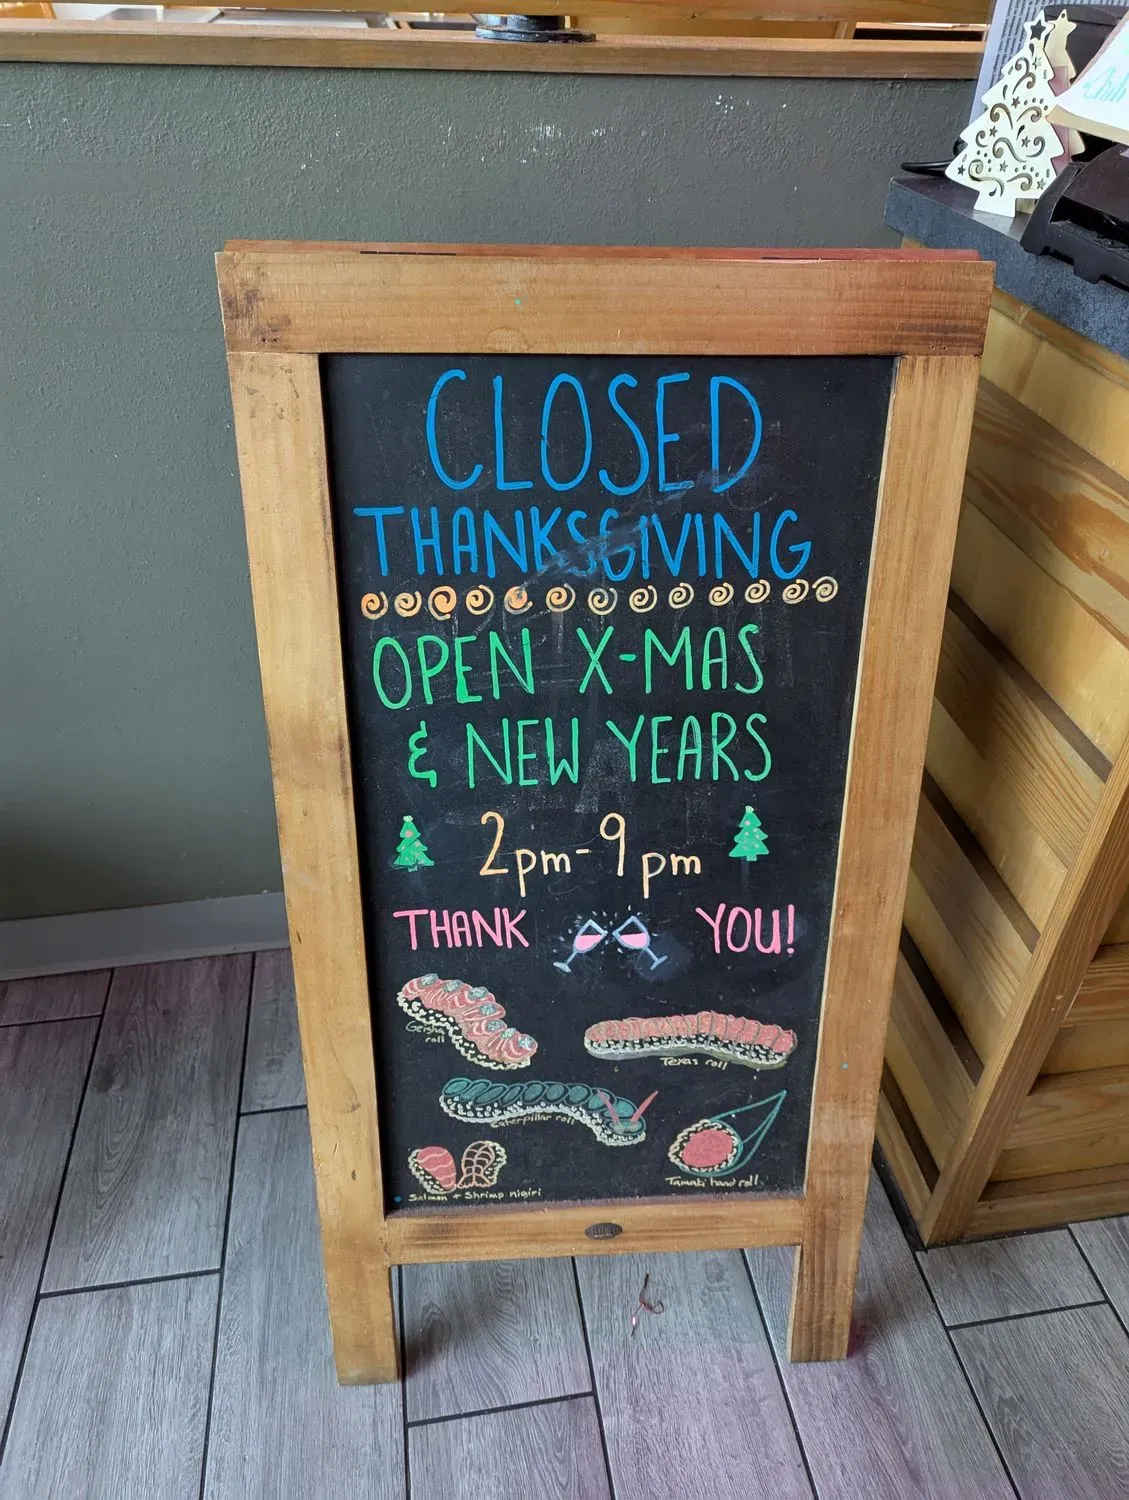 CLOSED
THANKSGIVING
OPEN X-MAS
& NEW YEARS
2pm-9pm
THANK YOU!
Geisha
roll
Texas roll
Caterpillar roll
Salmon + Shrimp nigiri
Tamaki hand roll